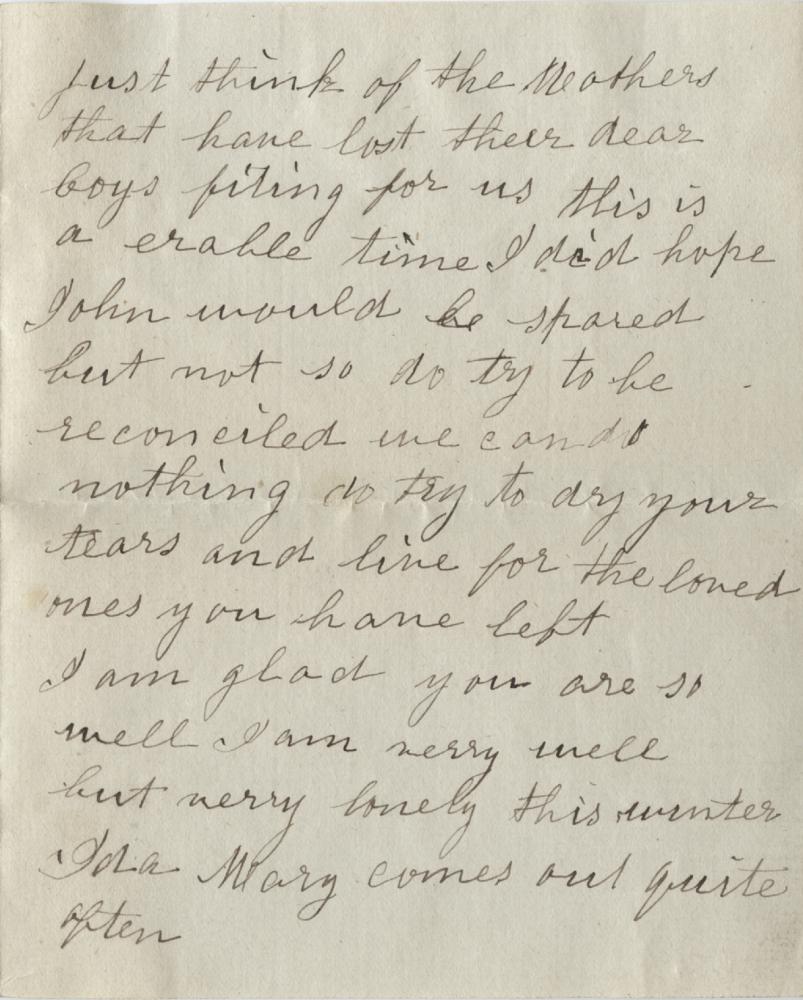 Just think of the Mothers
that have lost their dear
boys fiting for us this is
a erable time I did hope
John would be spared
but not so do try to be
reconciled we can do
nothing do try to dry your
tears and live for the loved
ones you have left
I am glad you are so
well I am verry well
but verry lonely this winter
Ida Mary comes out quite
often